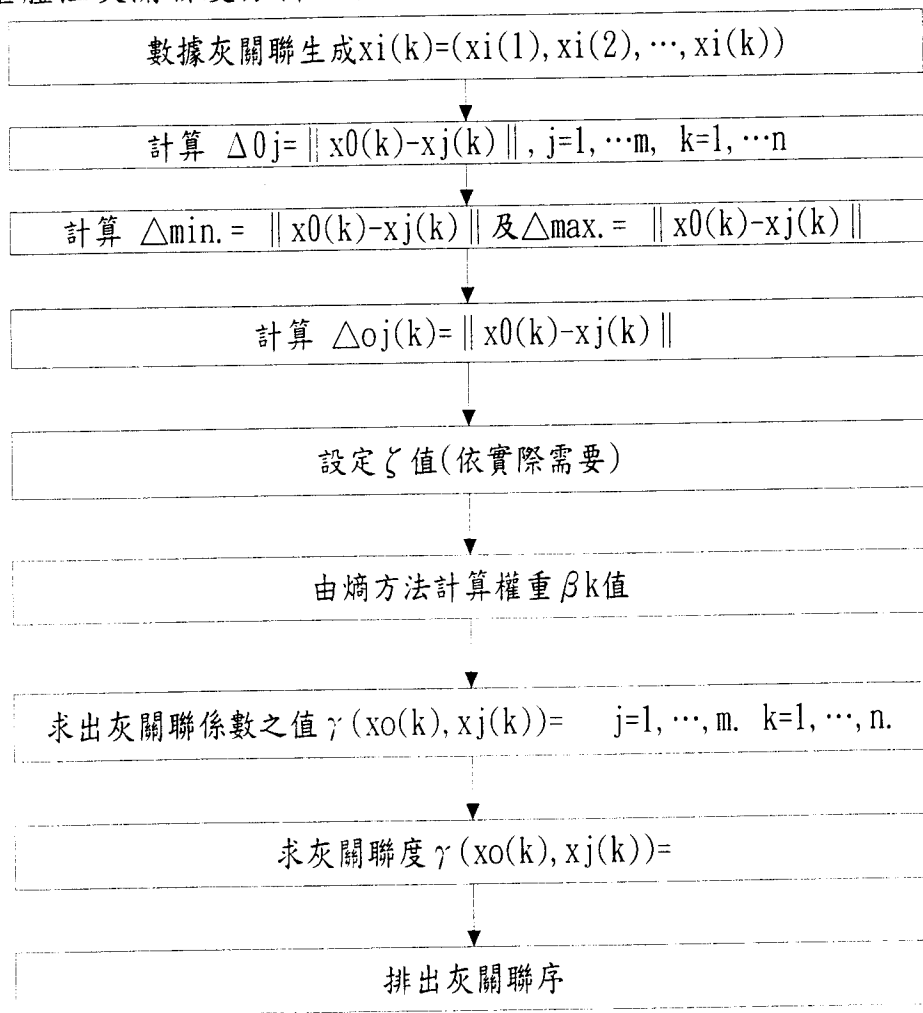 數據灰關聯生成xi(k)=(xi(1),xi(2),…,xi(k))
計算 Δ0j=‖x0(k)-xj(k)‖, j=1,…m, k=1,…n
計算 △min.= ‖x0(k)-xj(k)‖及△max.= ‖x0(k)-xj(k)‖
計算 △oj(k)=‖x0(k)-xj(k)‖
設定ζ值(依實際需要)
由熵方法計算權重βk值
求出灰關聯係數之值γ(xo(k),xj(k))= j=1,…,m. k=1,…,n.
求灰關聯度γ(xo(k),xj(k))=
排出灰關聯序